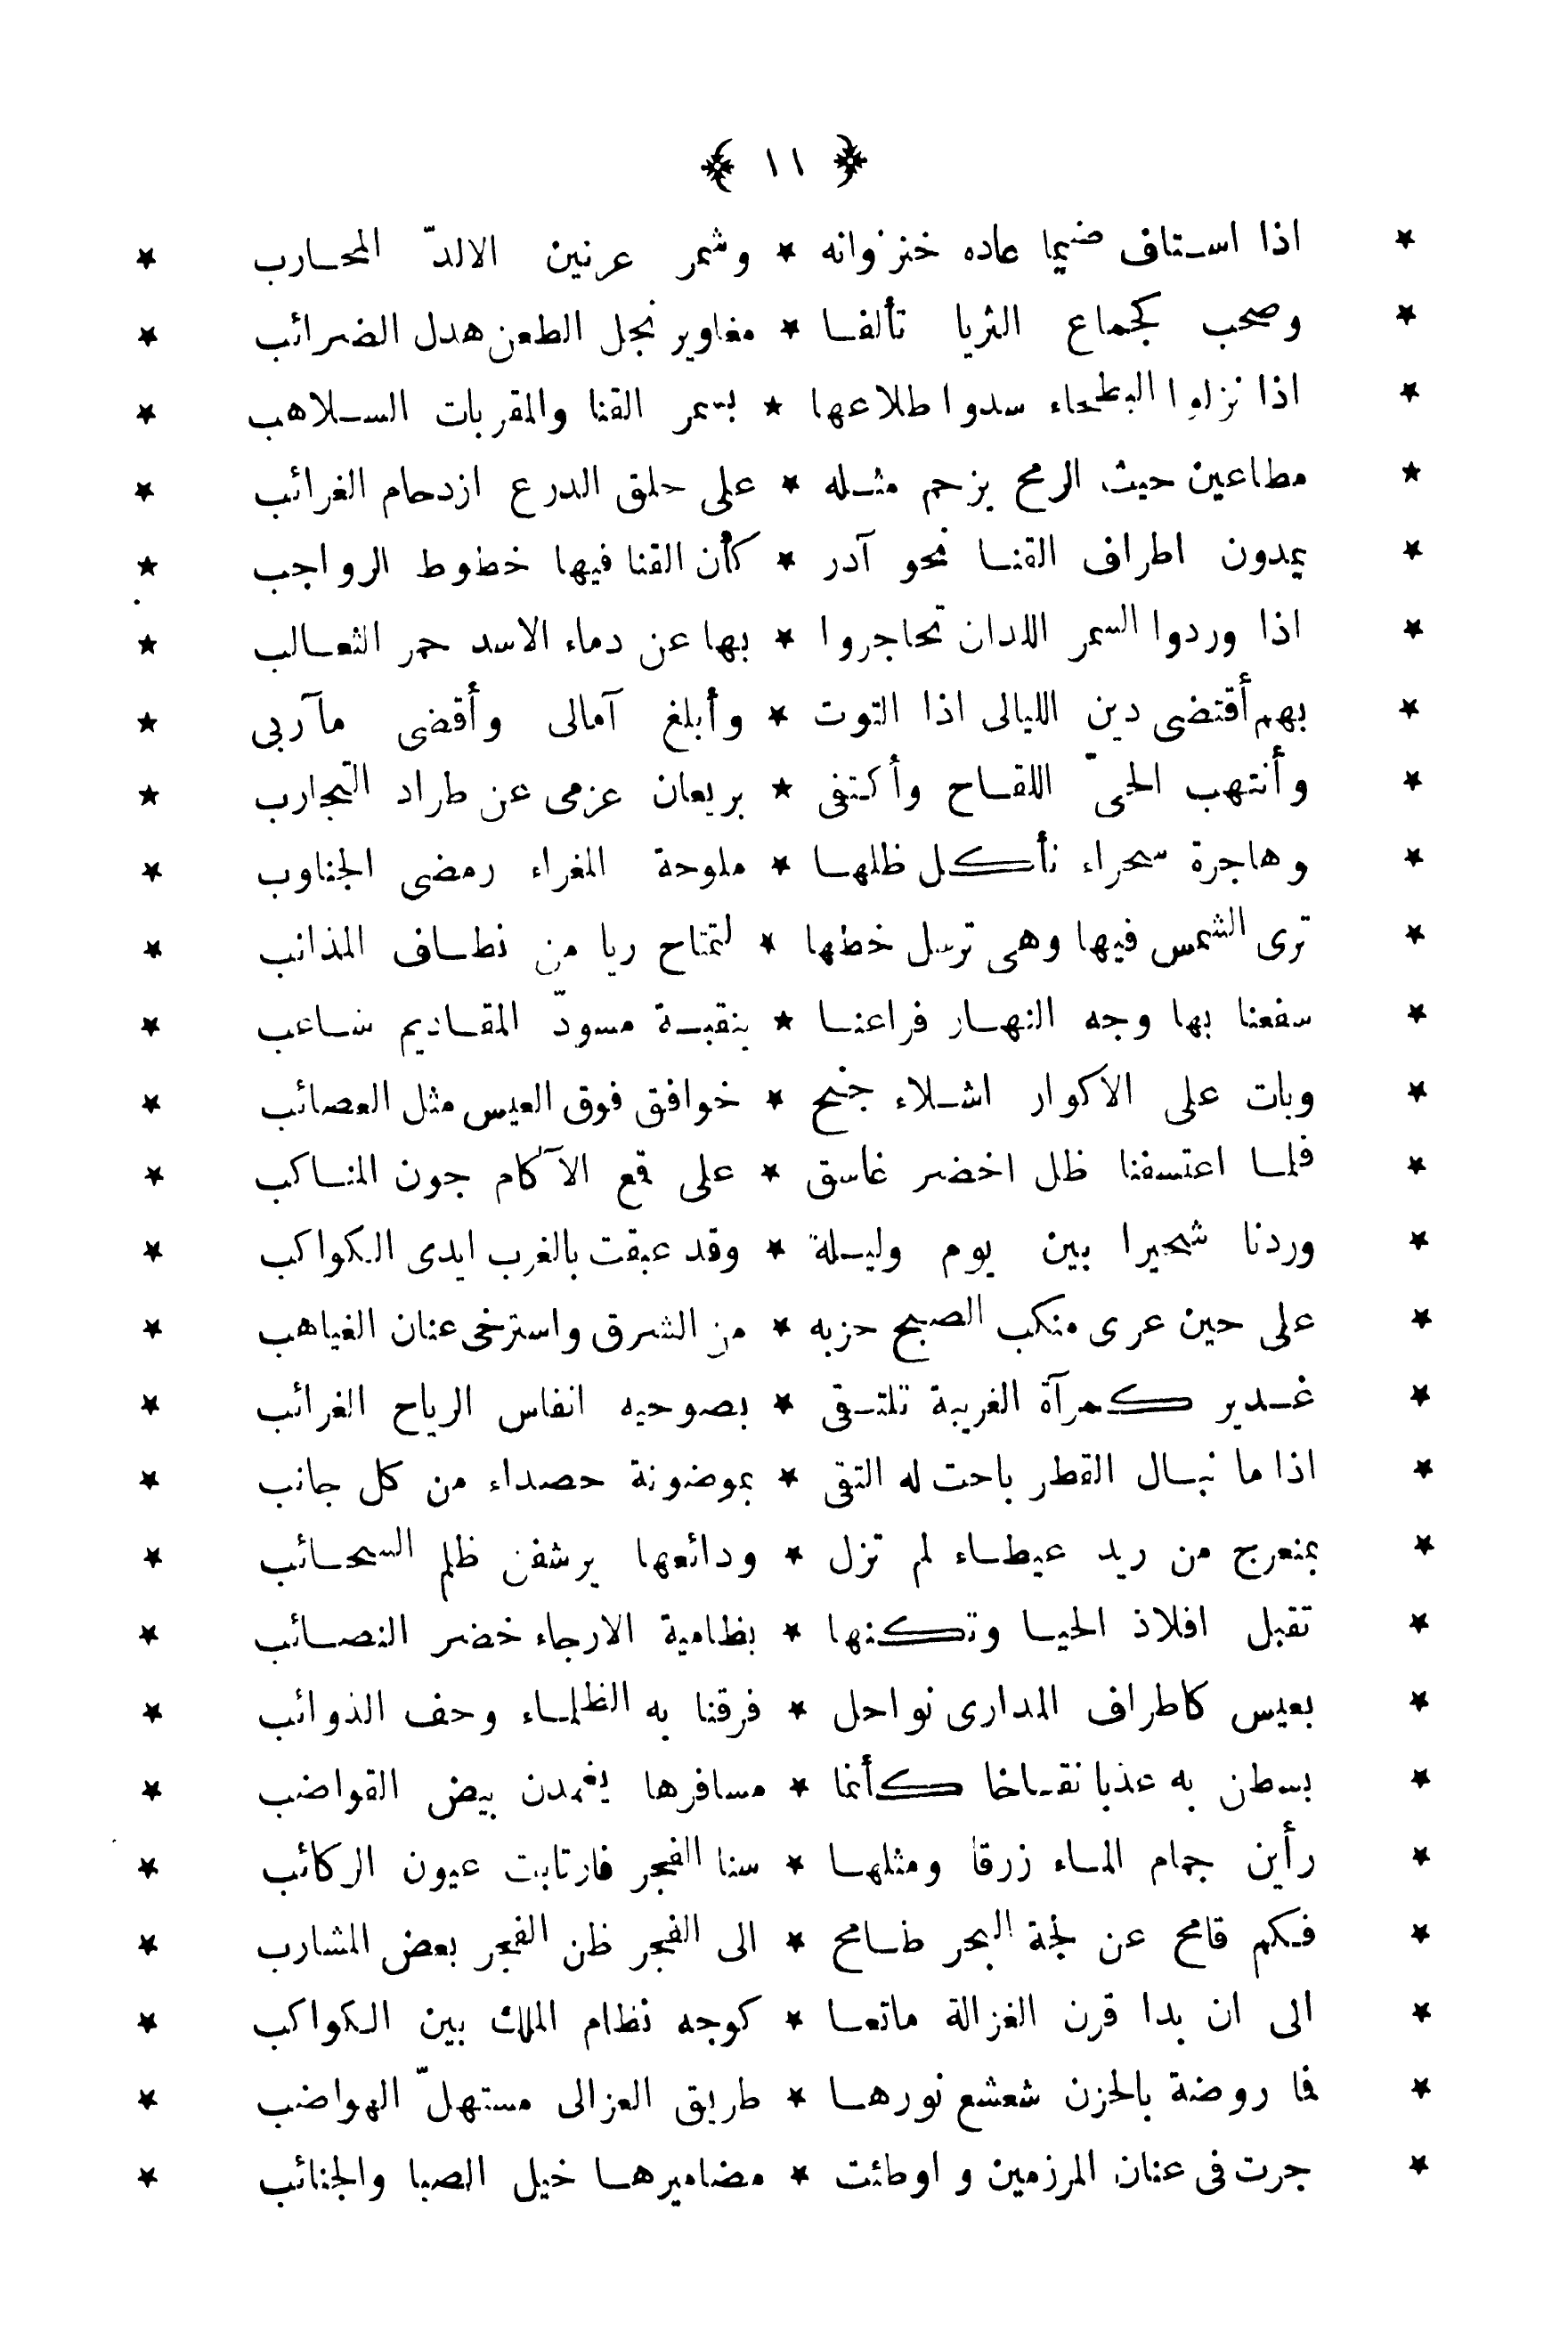 ﴿ ١١ ﴾
* اذا استاف ضيما عاده خنزوانه * وشمر عرنين الالدّ المحارب *
* وصحب كجماع الثريا تألفا * مغاوير نجل الطعن هدل الضرائب *
* اذا نزلوا البطحاء سدوا طلاعها * بسمر القنا والمقربات السلاهب *
* مطاعين حيث الرمح يزحم مثله * على حلق الدرع ازدحام الغرائب *
* يمدون اطراف القنا نحو آدر * كأن القنا فيها خطوط الرواجب *
* اذا وردوا السمر اللدان تحاجروا * بها عن دماء الاسد حمر الثعالب *
* بهم أقتضى دين الليالى اذا التوت * وأبلغ آمالى وأقضى مآربى *
* وأنتهب الحىّ اللقاح وأكتفى * بريعان عزمى عن طراد التجارب *
* وهاجرة سجراء تأكل ظلها * ملوحة المغراء رمضى الجناوب *
* ترى الشمس فيها وهى ترسل خطها * لتمتاح ريا من نطاف المذانب *
* سفعنا بها وجه النهار فراعنا * بنقبة مسودّ المقاديم شاعب *
* وبات على الاكوار اشلاء جنح * خوافق فوق العيس مثل العصائب *
* فلما اعتسفنا ظل اخضر غاسق * على قمع الآكام جون المناكب *
* وردنا سحيرا بين يوم وليلة * وقد عبقت بالغرب ايدى الكواكب *
* على حين عرى منكب الصبح حزبه * من الشرق واسترخى عنان الغياهب *
* غدير كمرآة الغريبة تلتقى * بصوحيه انفاس الرياح الغرائب *
* اذا ما نبال القطر باحت له التقى * بموضونة حصداء من كل جانب *
* بمنعرج من ريد عيطاء لم تزل * ودائعها يرشفن ظلم السحائب *
* تقبل افلاذ الحيا وتكنها * بظامية الارجاء خضر النصائب *
* بعيس كاطراف المدارى نواحل * فرقنا به الظلماء وحف الذوائب *
* بسطن به عذبا نقاخا كأنما * مسافرها يغمدن بيض القواضب *
* رأين جمام الماء زرقا ومثلها * سنا الفجر فارتابت عيون الركائب *
* فكم قامح عن لجة البحر طامح * الى الفجر ظن الفجر بعض المشارب *
* الى ان بدا قرن الغزالة ماتعا * كوجه نظام الملك بين الكواكب *
* فما روضة بالحزن شعشع نورها * طريق العزالى مستهلّ الهواضب *
* جرت فى عنان المرزمين و اوطئت * مضاميرها خيل الصبا والجنائب *